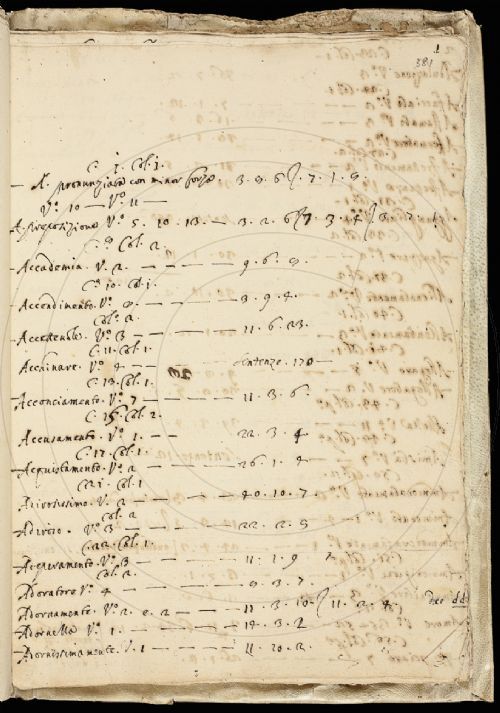 1
381
C. 1. Col. 1.
A. pronunziato con minor forza 3. 9. 6 7. 1. 9.
V.º 10 — V.º 11 —
A. preposizione V.º 5. 10. 13 — 3. 2. 6 7. 3. 4 3. 7. 1.
C. 9 Col. 2.
Accademia. V. 2. — — — — 9. 6. 9.
C. 10. Col. 1.
Accendimento. V.º 8. — — — 3. 9. 4.
Col. 2.
V.º 3 — — — — 11. 6. 23.
C. 11. Col. 1.
Acchinare. V.º 4 — — — sentenze. 170 —
C. 13. Col. 1.
Acconciamento. V.º 7 — — — 11. 3. 6.
C. 15. Col. 2.
Accusamento. V.º 1. — — 22. 3. 4
C. 17. Col. 1.
Acquistamento. V.º 2 — — — 26. 1. 4
C. 21. Col. 1
V. 2 — — — 40. 10. 7.
Col. 2
V.º 3 — — — 22. 2. 5
C. 22. Col. 1.
V.º 3 — — — 11. 1. 9
Col. 2.
Adoratore V.º 4 — — — 9. 3. 7.
Adornamento. V.º 2. e. 2 — — — 11. 3. 10. 11. 2. 4.
Adornello V.º 1. — — — 14. 3. 2
Adornissimamente. V. 1 — — — 11. 20. 2.